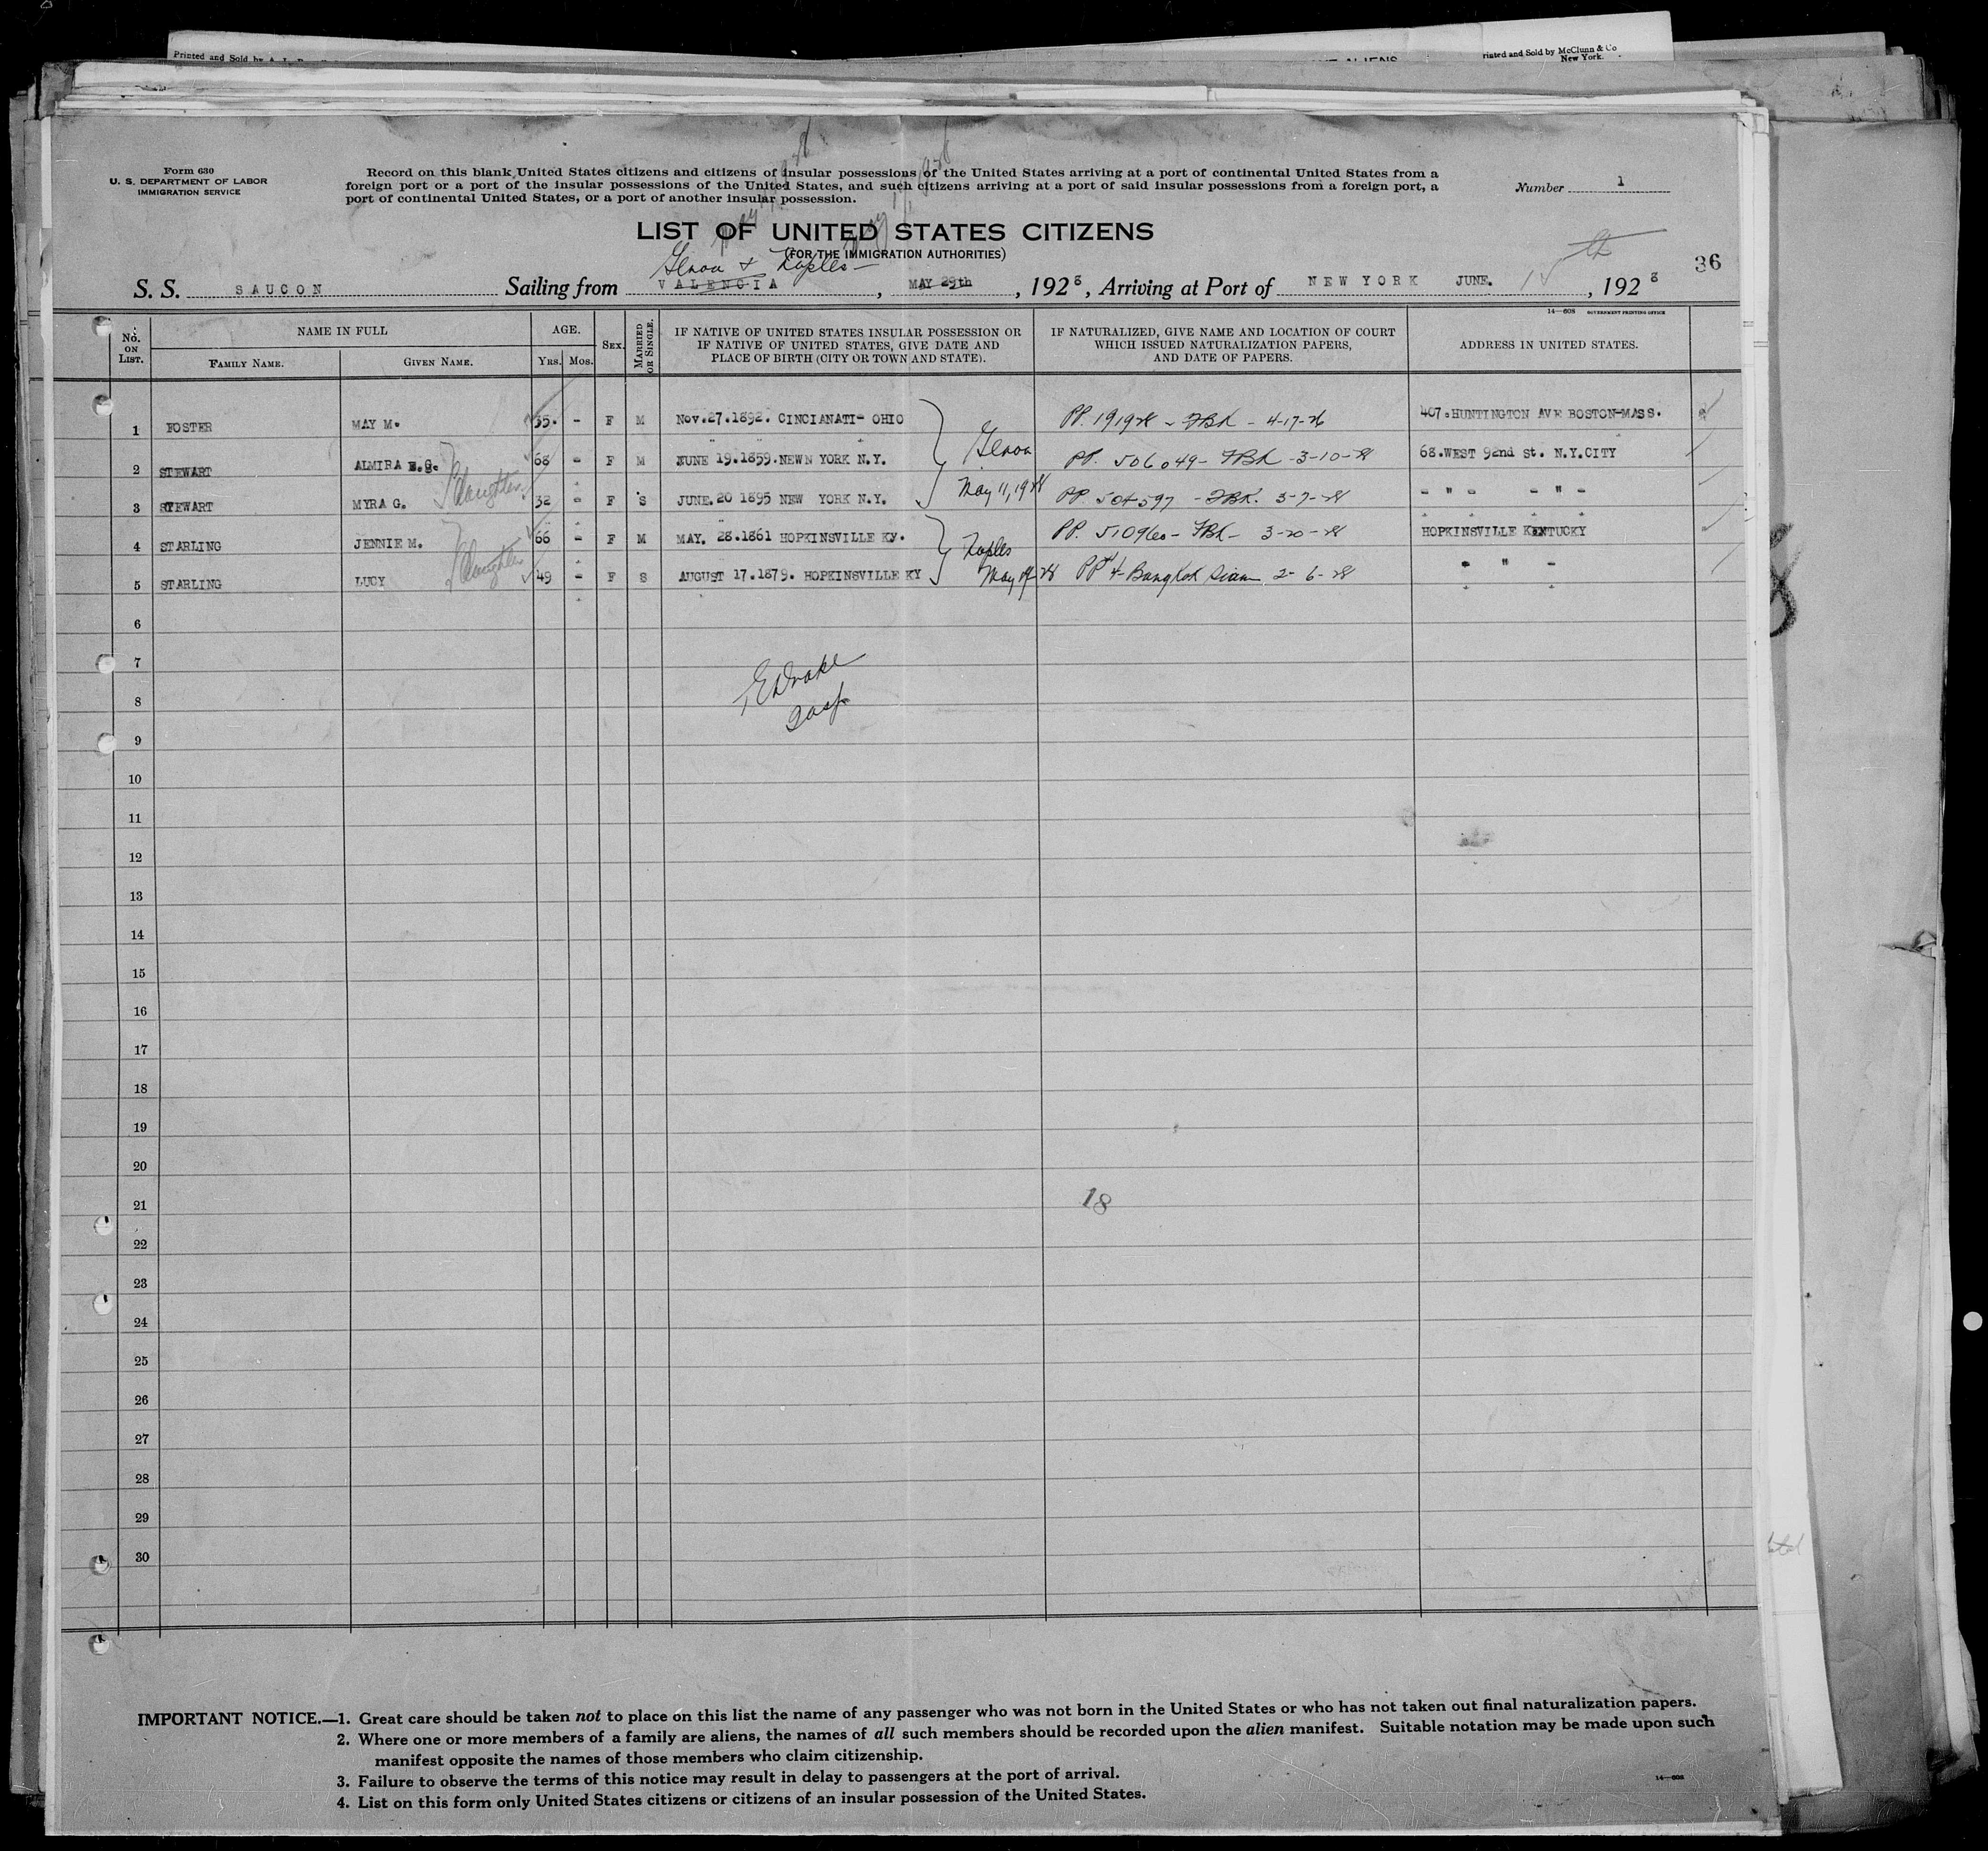 Printed and Sold by
Printed and Sold by McClunn & Co
New York.
Form 630
U. S. DEPARTMENT OF LABOR
IMMIGRATION SERVICE
Record on this blank United States citizens and citizens of insular possessions of the United States arriving at a port of continental United States from a
foreign port or a port of the insular possessions of the United States, and such citizens arriving at a port of said insular possessions from a foreign port, a
port of continental United States, or a port of another insular possession.
Number 1
LIST OF UNITED STATES CITIZENS
(FOR THE IMMIGRATION AUTHORITIES)
36
Genoa + Naples
S. S. SAUCON Sailing from VALENCIA, MAY 29th, 1928, Arriving at Port of NEW YORK JUNE. 15 th, 1928
14—608 GOVERNMENT PRINTING OFFICE
No. ON LIST. NAME IN FULL AGE. SEX. MARRIED OR SINGLE. IF NATIVE OF UNITED STATES INSULAR POSSESSION OR IF NATIVE OF UNITED STATES, GIVE DATE AND PLACE OF BIRTH (CITY OR TOWN AND STATE). IF NATURALIZED, GIVE NAME AND LOCATION OF COURT WHICH ISSUED NATURALIZATION PAPERS, AND DATE OF PAPERS. ADDRESS IN UNITED STATES.
FAMILY NAME. GIVEN NAME. YRS. MOS.
1 FOSTER MAY M. 35. - F M Nov.27.1892. CINCIANATI- OHIO PP. 191928 - FBK - 4-17-26 407.HUNTINGTON AVE BOSTON-MASS.
2 STEWART ALMIRA E.G. 68 - F M JUNE 19.1859.NEWN YORK N.Y. Genoa PP. 506049 - FBK - 3-10-28 68.WEST 92nd St. N.Y.CITY
3 STEWART MYRA G. daughter 32 - F S JUNE.20 1895 NEW YORK N.Y. May 11, 1928 PP. 504597 - FBK. 3-7-28 - " - - " -
4 STARLING JENNIE M. 66 - F M MAY. 28.1861 HOPKINSVILLE Ky. Naples PP. 510960 - FBK - 3-20-28 HOPKINSVILLE KENTUCKY
5 STARLING LUCY daughter 49 - F S AUGUST 17.1879. HOPKINSVILLE KY May 17-28 PP 4 - Bangkok Siam 2-6-28 - " -
6
7
E Drake
8
9
10
11
12
13
14
15
16
17
18
19
20
21 18
22
23
24
25
26
27
28
29
30
IMPORTANT NOTICE.—1. Great care should be taken not to place on this list the name of any passenger who was not born in the United States or who has not taken out final naturalization papers.
2. Where one or more members of a family are aliens, the names of all such members should be recorded upon the alien manifest. Suitable notation may be made upon such
manifest opposite the names of those members who claim citizenship.
3. Failure to observe the terms of this notice may result in delay to passengers at the port of arrival.
4. List on this form only United States citizens or citizens of an insular possession of the United States.
14—608